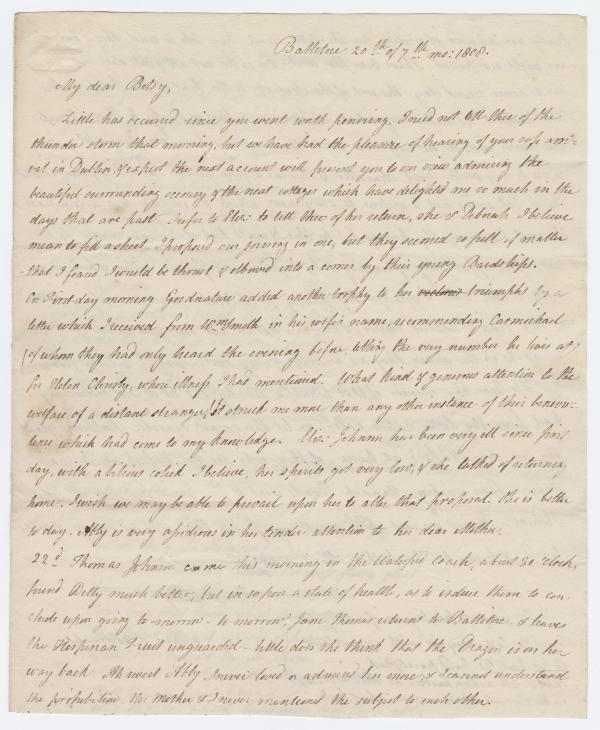 Ballitore 20th of 7th mo: 1808.
My dear Betsy,
Little has occurred since you went worth penning. I need not tell thee of the
thunder storm that morning, but we have had the pleasure of hearing of your safe arri-
val in Dublin, & expect the next account will present you to our view admiring the
beautiful surrounding scenery & the neat cottages which have delighted me so much in the
days that are past. I refer to Eliz: to tell thee of her return, she & Deborah I believe
mean to fill a sheet. I proposed our joining in one, but they seemed so full of matter
that I feared I would be thrust & elbowed into a corner by their young Bardships.
On First-day morning Goodnature added another trophy to her various triumphs by a
letter which I received from Wm Smith in his wife's name, recommending Carmichael
(of whom they had only heard the evening before telling the very number he lives at)
for Helen Christy, whose illness I had mentioned. What kind & generous attention to the
welfare of a distant stranger! It struck me more than any other instance of their benevo-
lence which had come to my knowledge. Eliz: Johnson has been very ill since first
day, with a bilious colick I believe, her spirits got very low, & she talked of returning
home. I wish we may be able to prevail upon her to alter that proposal. She is better
to day. Abby is very assiduous in her tender attention to her dear Mother.
22d Thomas Johnson came this morning in the Waterford Coach, about 3 o'clock,
found Betty much better, but in so poor a state of health, as to induce them to con-
clude upon going to-morrow - to-morrow, Jane Thomas returns to Ballitore & leaves
the Hesperian Fruit unguarded - little does she think that the Dragon is on her
way back. Ah sweet Abby I never loved or admired her more, & I cannot understand
the prohibition. Her mother & I never mentioned the subject to each other.